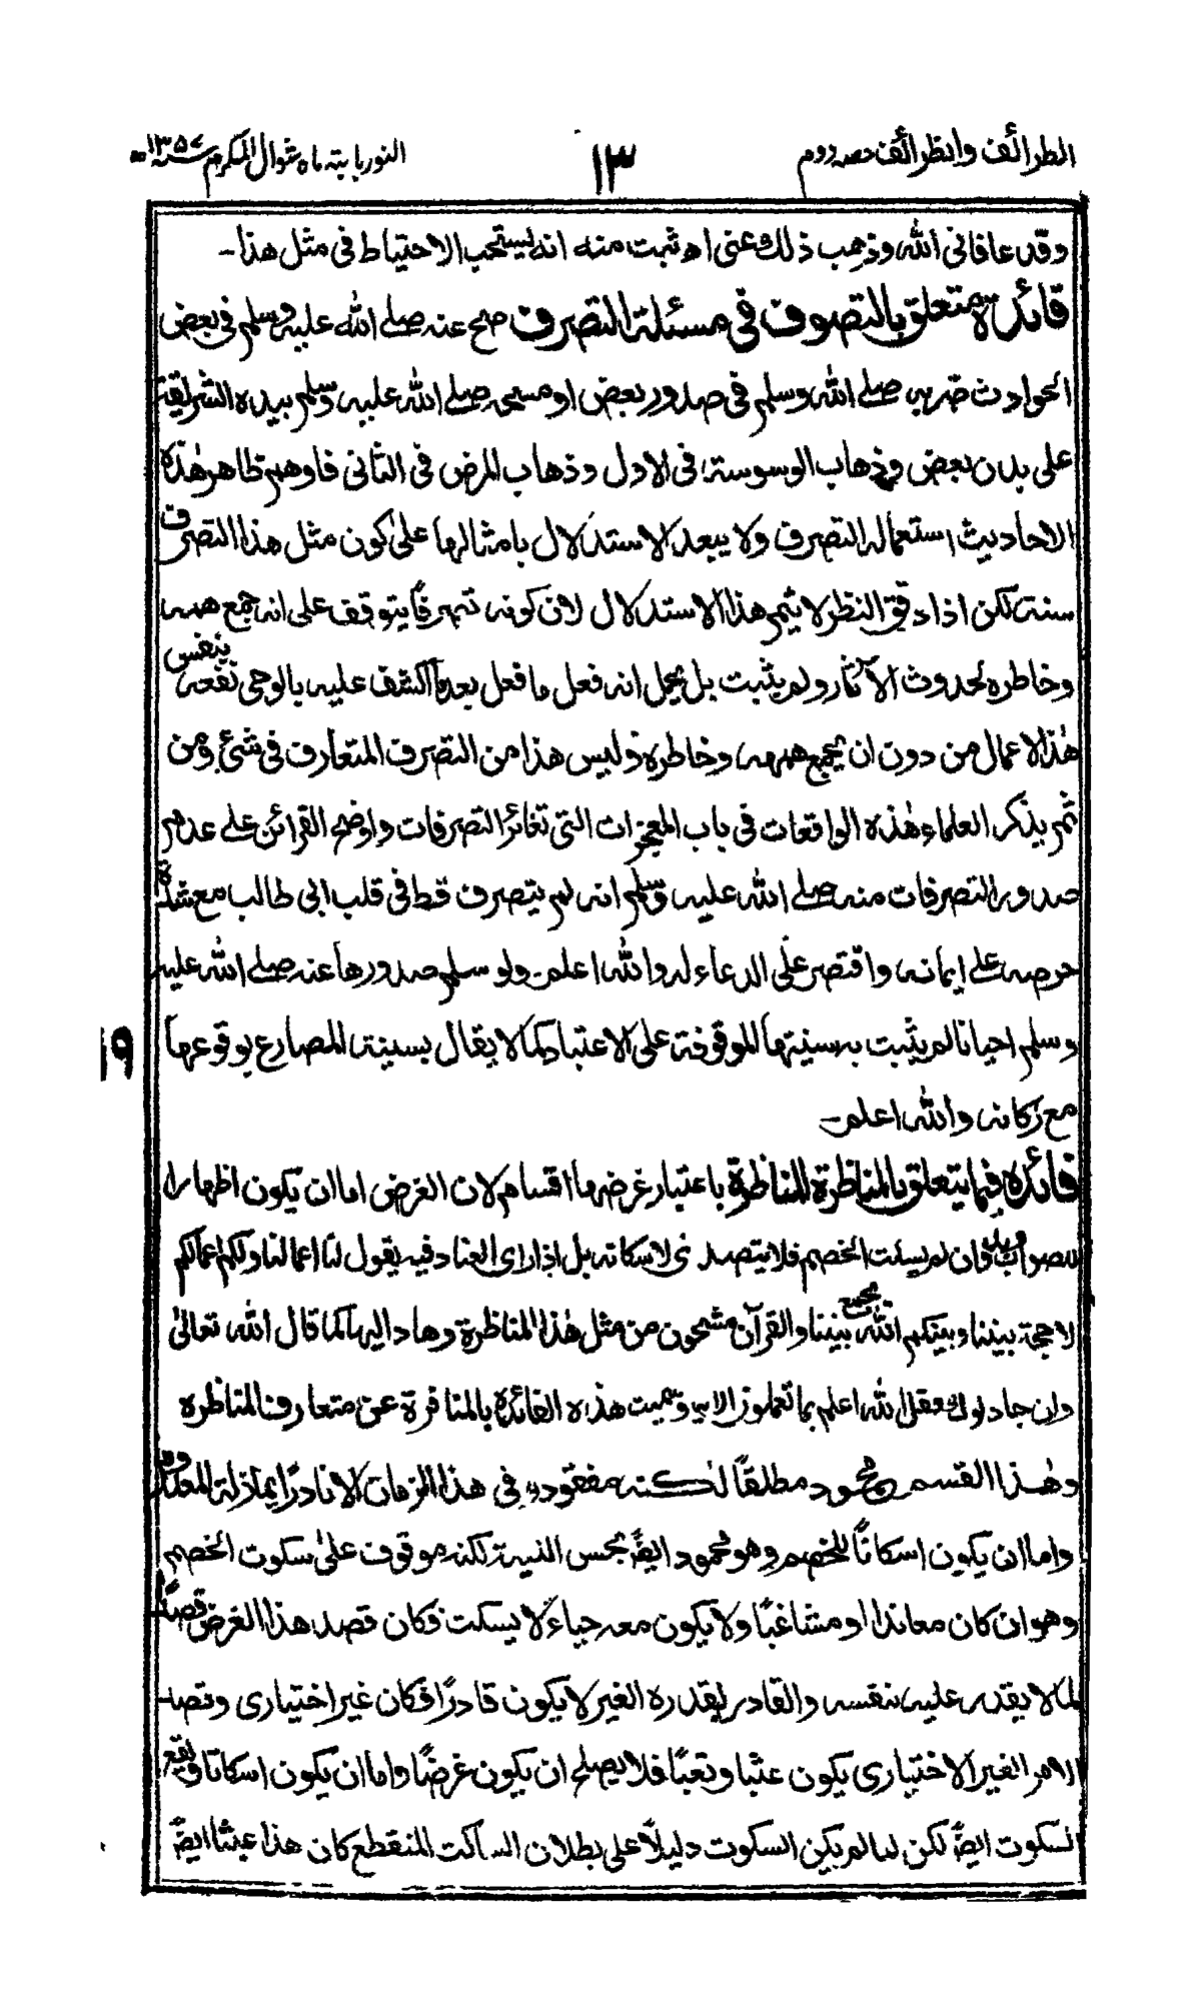 الطرائف والظرائف حصہ دوم ۱۳ النور بابتہ ماہ شوال المکرم ۱۳۵۷ھ
وقد عافانی اللہ وذهب ذلك عنی اھ ثبت منه انه یستحب الاحتیاط فی مثل هذا۔
فائدة متعلق بالتصوف فی مسئلة التصرف صح عنه صلے اللہ علیہ وسلم فی بعض
الحوادث ضربه صلے اللہ وسلم فی صدور بعض او مسحه صلے اللہ علیہ وسلم بیدہ الشریفة
علی بدن بعض وذهاب الوسوسة فی الاول وذهاب المرض فی الثانی فاوهم ظاهر هٰذه
الاحادیث استعماله التصرف ولا یبعد الاستدلال بامثالها علیٰ کون مثل هذا التصرف
سنة لکن اذا دقق النظر لا یتم هذا الاستدلال لان کونه تصرفًا یتوقف علی انه جمع همه
وخاطره لحدوث الآثار ولم یثبت بل یحمل انه فعل ما فعل بعد ما انکشف علیه بالوحی نفعه بنفس
هٰذا الاعمال من دون ان یجمع همه وخاطره ولیس هذا من التصرف المتعارف فی شئ ومن
ثم یذکر العلماء هٰذه الواقعات فی باب المعجزات التی تغائر التصرفات واوضح القرائن علے عدم
صدور التصرفات منه صلے اللہ علیہ وسلم انه لم یتصرف قط فی قلب ابی طالب مع شدة
حرصه علے ایمانه واقتصر علی الدعاء له واللہ اعلم۔ ولو سلم صدورها عنه صلے اللہ علیہ
وسلم احیانا لم یثبت به سنیتها الموقوفة علی الاعتیاد کما لا یقال بسنیة المصارع بوقوعها
مع رکانه واللہ اعلم۔
۱۹
فائدہ فیما یتعلق بالمناظرة المناظرة باعتبار غرضها اقسام لان الغرض اما ان یکون اظهارا
للصواب فان لم یسکت الخصم فلا یتصدی لاسکاته بل اذا رای العناد فیه یقول لنا اعمالنا ولکم اعمالکم
لا حجة بیننا وبینکم اللہ یجمع بیننا والقرآن مشحون من مثل هٰذا المناظرة وهاد الیها کما قال اللہ تعالیٰ
وان جادلوك فقل اللہ اعلم بما تعملون الایہ وسمیت هذه الفائدة بالمنافرة عن متعارف المناظره
وهٰذا القسم محمود مطلقاً لٰکنه مفقود فی هذا الزمان الا نادرًا بمنزلة المعدوم
واما ان یکون اسکاتًا للخصم وهو محمود ایضًا بحسن النیة لکنه موقوف علیٰ سکوت الخصم
وهو ان کان معاندا او مشاغبًا ولا یکون معه حیاء لا یسکت فکان قصد هذا الغرض قصدًا
لما لا یقدر علیه بنفسه والقادر بقدرة الغیر لا یکون قادرًا فکان غیر اختیاری وقصد
الامر الغیر الاختیاری یکون عبثا وتعبًا فلا یصلح ان یکون غرضًا واما ان یکون اسکاتا ویقع
السکوت ایضًا لکن لما لم یکن السکوت دلیلًا علی بطلان الساکت المنقطع کان هذا عبثا ایضًا